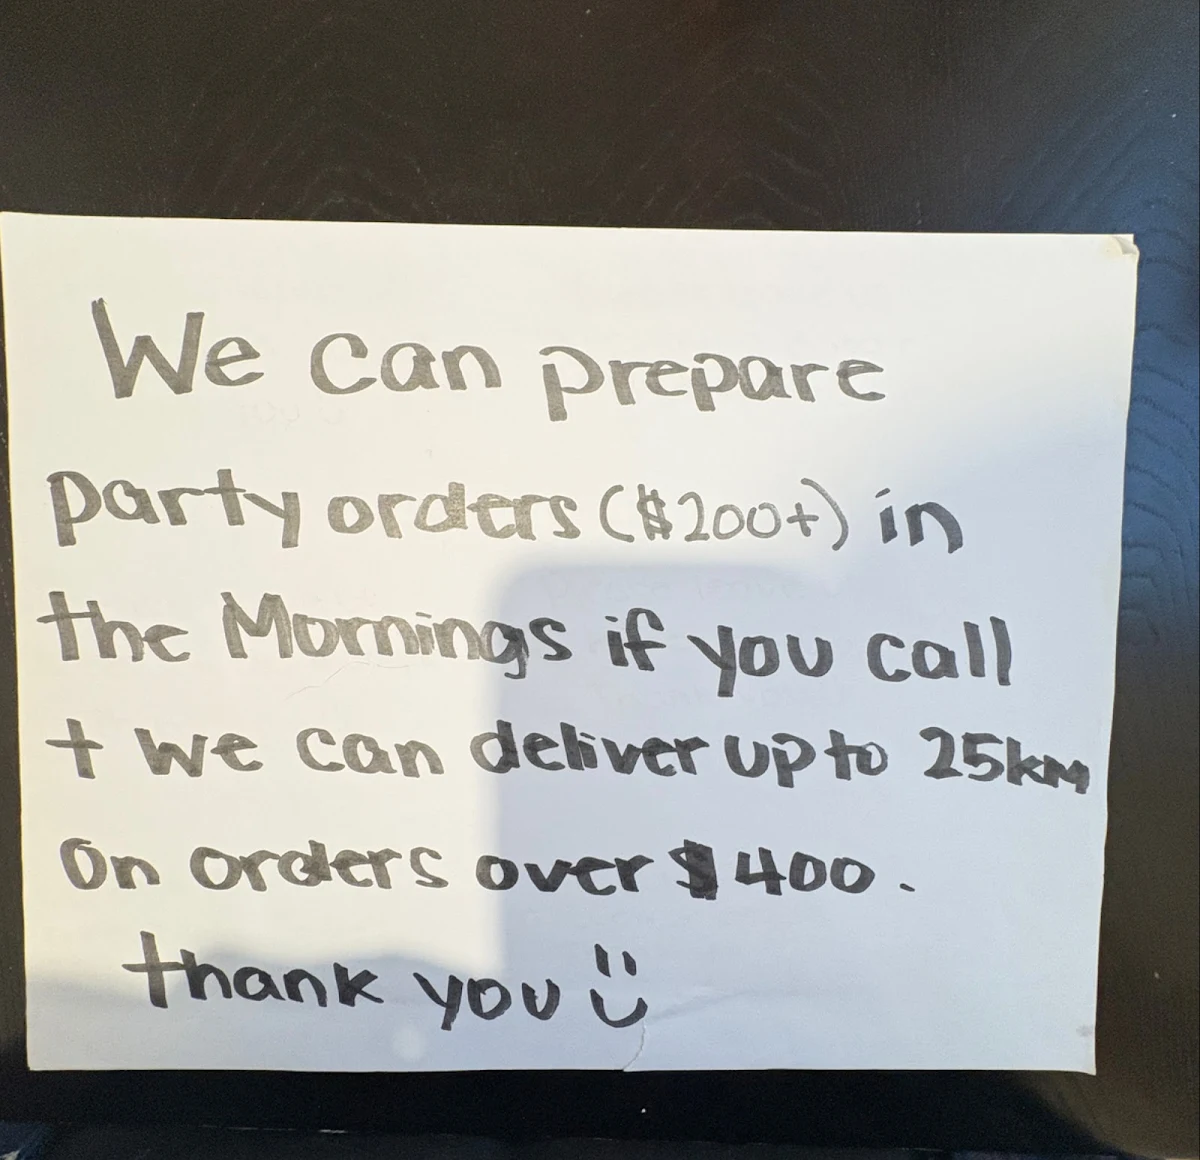 We can prepare
party orders ($200+) in
the Mornings if you call
+ we can deliver up to 25km
on orders over $400.
thank you :)